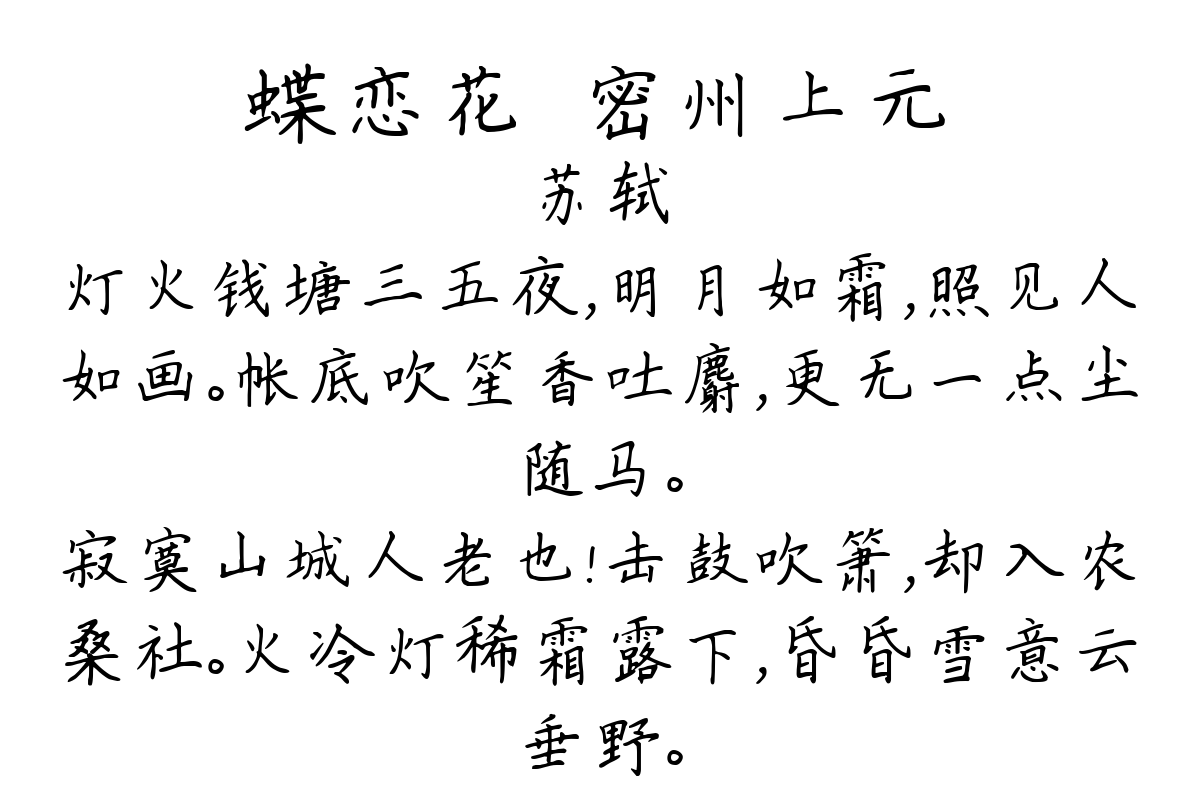 蝶恋花 密州上元
苏轼
灯火钱塘三五夜,明月如霜,照见人
如画。帐底吹笙香吐麝,更无一点尘
随马。
寂寞山城人老也!击鼓吹箫,却入农
桑社。火冷灯稀霜露下,昏昏雪意云
垂野。